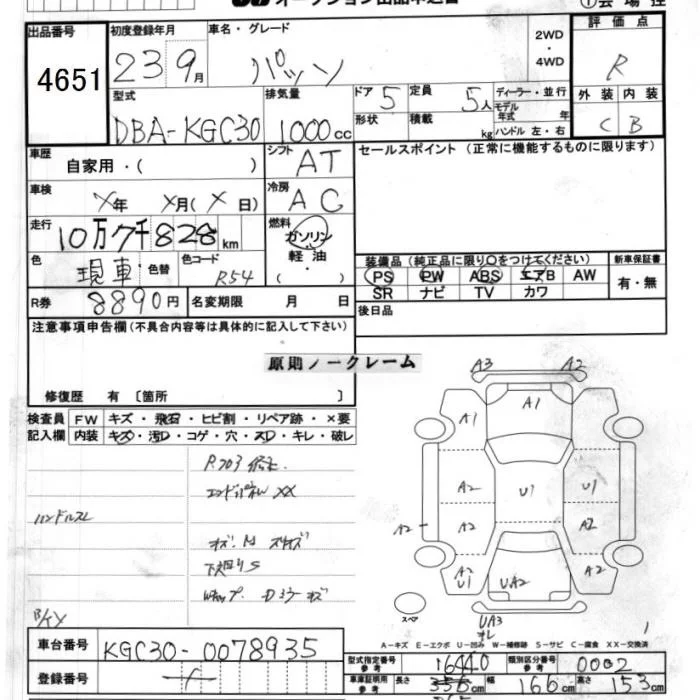 オークション出品申込書
会場控
出品番号
4651
初度登録年月
23 9月
車名・グレード
パッソ
2WD
・
4WD
評価点
R
型式
DBA-KGC30
排気量
1000cc
ドア 5
形状
定員 5人
積載 kg
ディーラー・並行
モデル
年式 年
ハンドル 左・右
外装 内装
C B
車歴
自家用・( )
シフト AT
セールスポイント (正常に機能するものに限ります)
車検
X年 X月(X日)
冷房 AC
走行
10万7千828km
燃料
ガソリン
軽油
・
( )
色
現車
色替
色コード
R54
装備品 (純正品に限り○をつけてください)
PS PW ABS エアB AW
SR ナビ TV カワ
新車保証書
有・無
R券 8890円
名変期限 月 日
後日品
注意事項申告欄 (不具合内容等は具体的に記入して下さい)
原則ノークレーム
修復歴 有 〔箇所 〕
検査員
記入欄
FW キズ・飛石・ヒビ割・リペア跡・×要
内装 キズ・汚レ・コゲ・穴・スレ・キレ・破レ
エンドパネルXX
ハンドルスレ
下廻りS
A3 A2
A1 A1
A2 U1 U1
A2 A2 A2
A2
U1 UA2 A2
スペア
UA3
オレ
1
A-キズ E-エクボ U-凹み W-補修跡 S-サビ C-腐食 XX-交換済
車台番号
KGC30-0078935
登録番号
型式指定番号
参考
16440
類別区分番号
参考
0002
車庫証明用
参考
長さ 356cm 幅 166cm 高さ 153cm
365